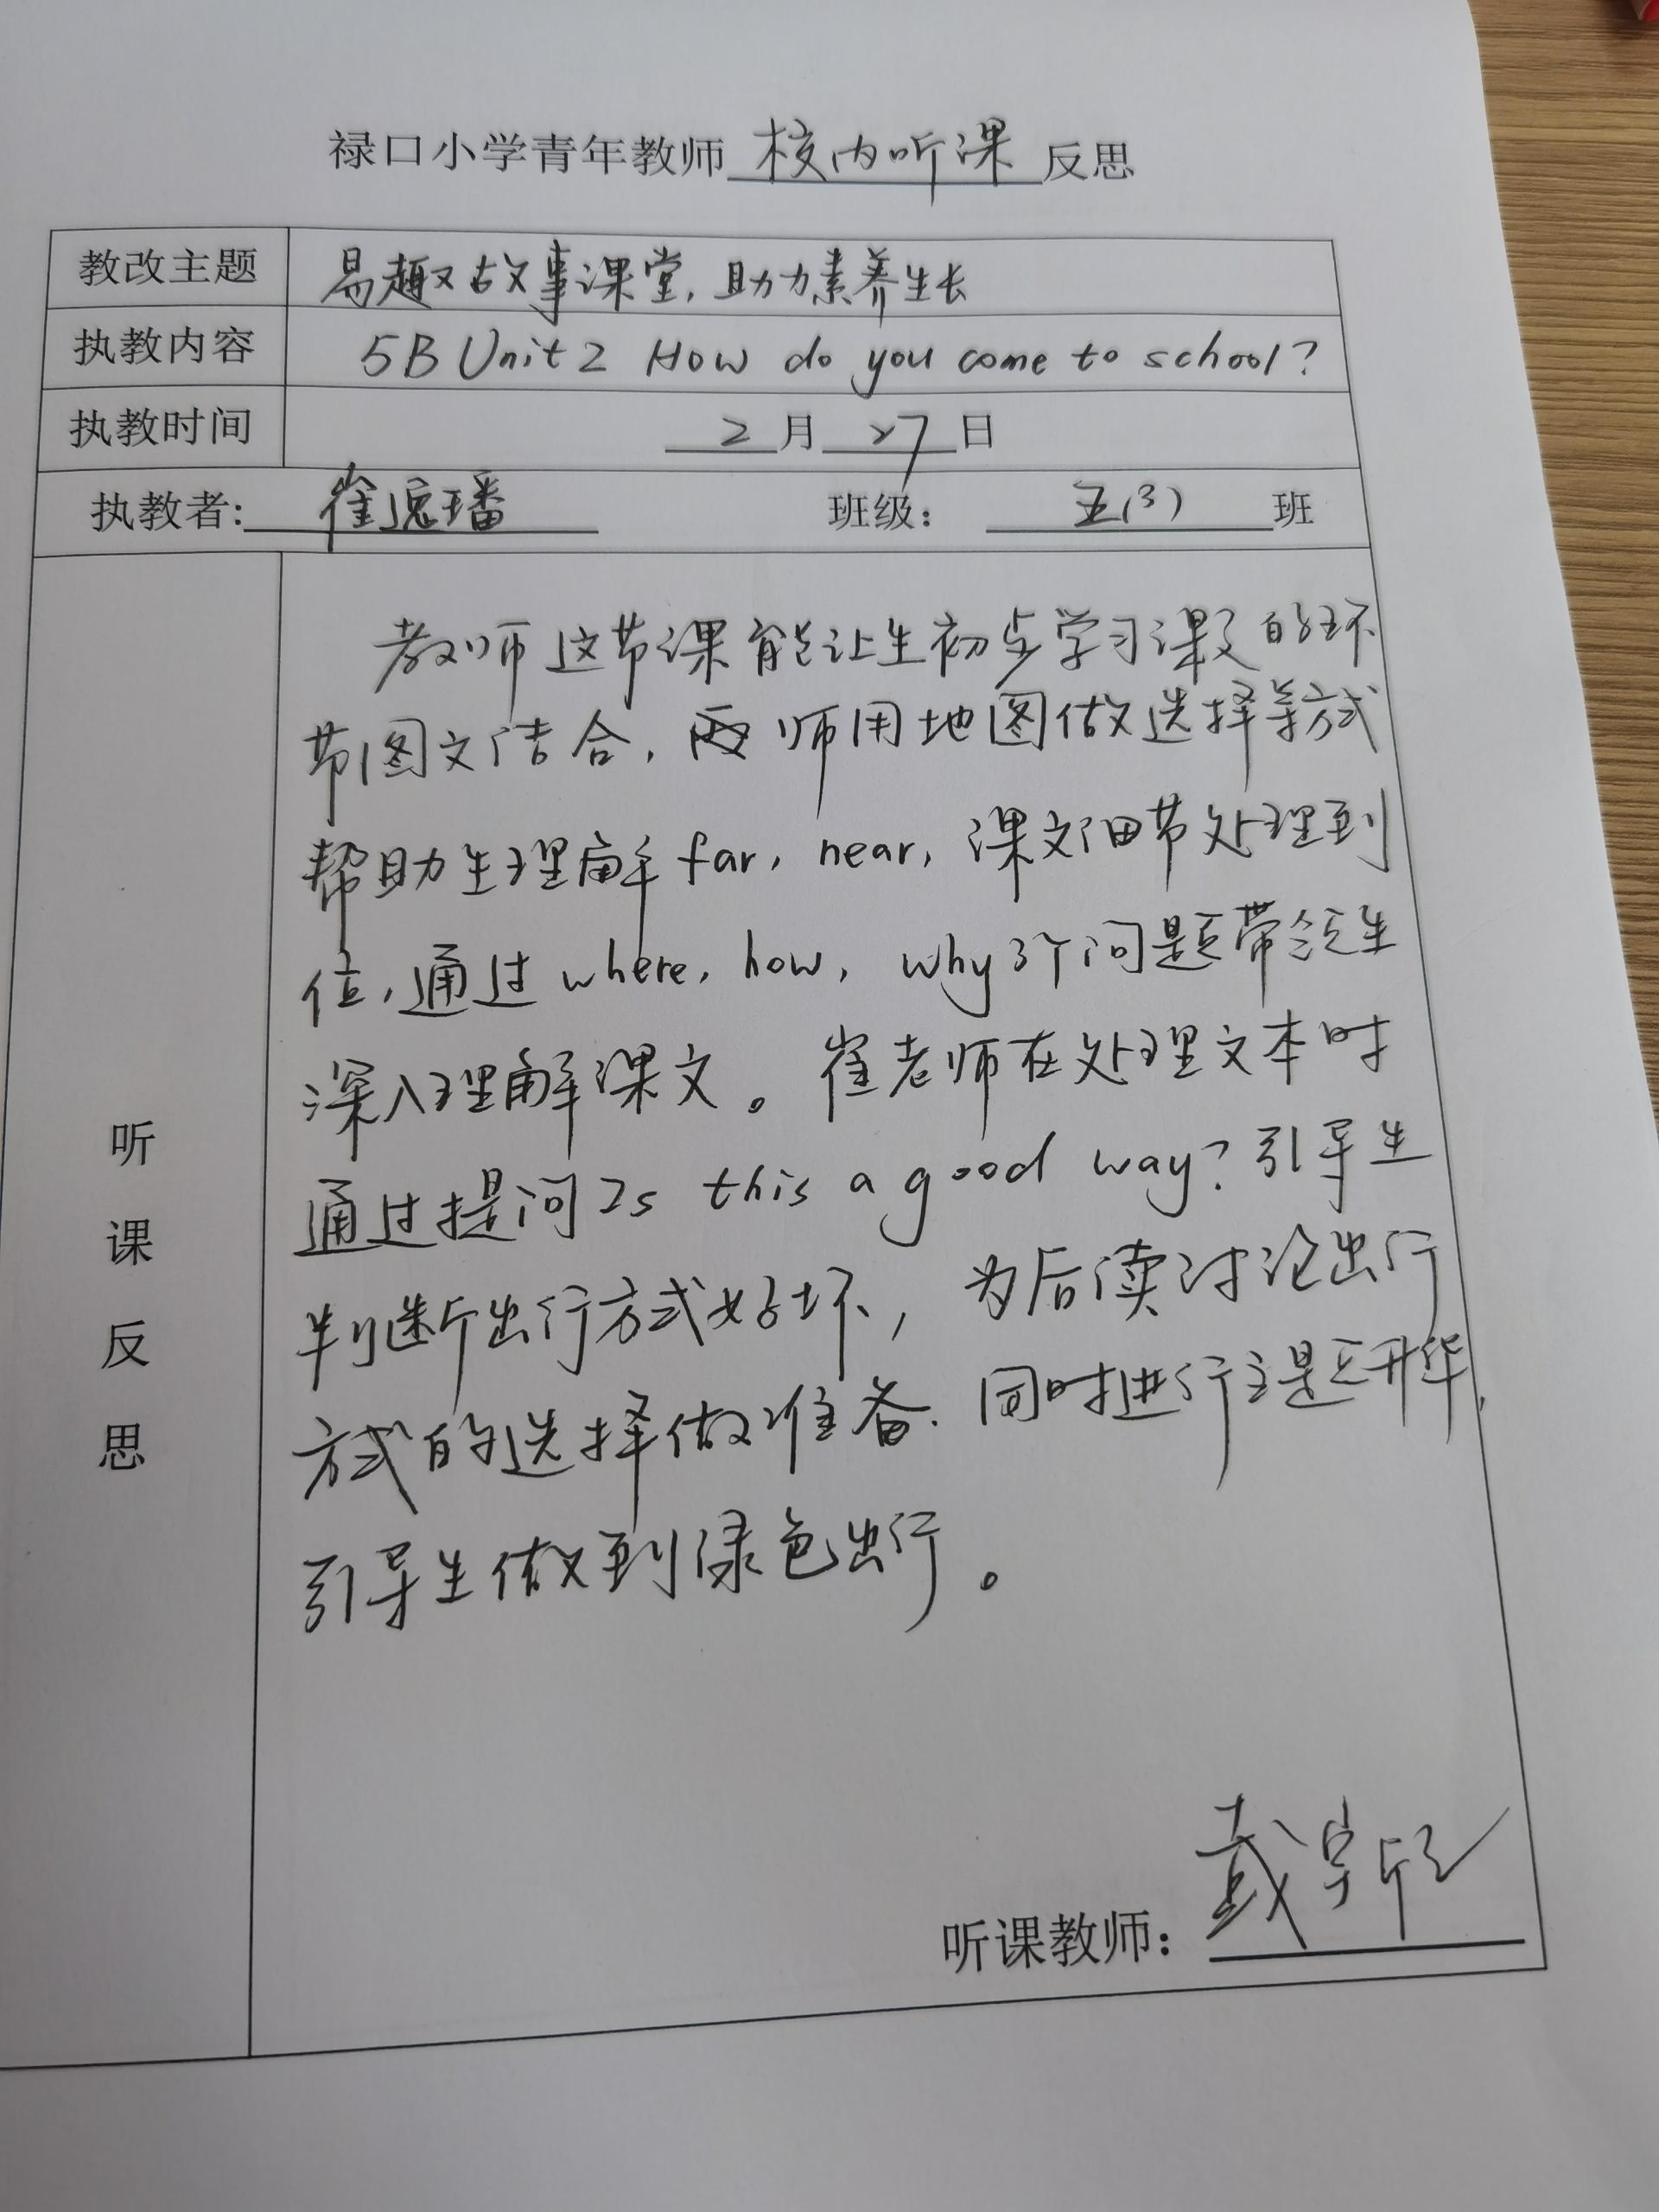 禄口小学青年教师 校内听课 反思
教改主题 易趣故事课堂，助力素养生长
执教内容 5B Unit 2 How do you come to school?
执教时间 2 月 27 日
执教者: 崔 璠 班级: 五(3) 班
听课反思
教师这节课能让生初步学习课文的环
节图文结合, 师用地图做选择等方式
帮助生理解 far, near, 课文细节处理到
位, 通过 where, how, why 3个问题带领生
深入理解课文。崔老师在处理文本时
通过提问 Is this a good way? 引导生
判断出行方式好坏, 为后读讨论出行
方式的选择做准备. 同时进行主题升华,
引导生做到绿色出行。
听课教师: 戴宇欣